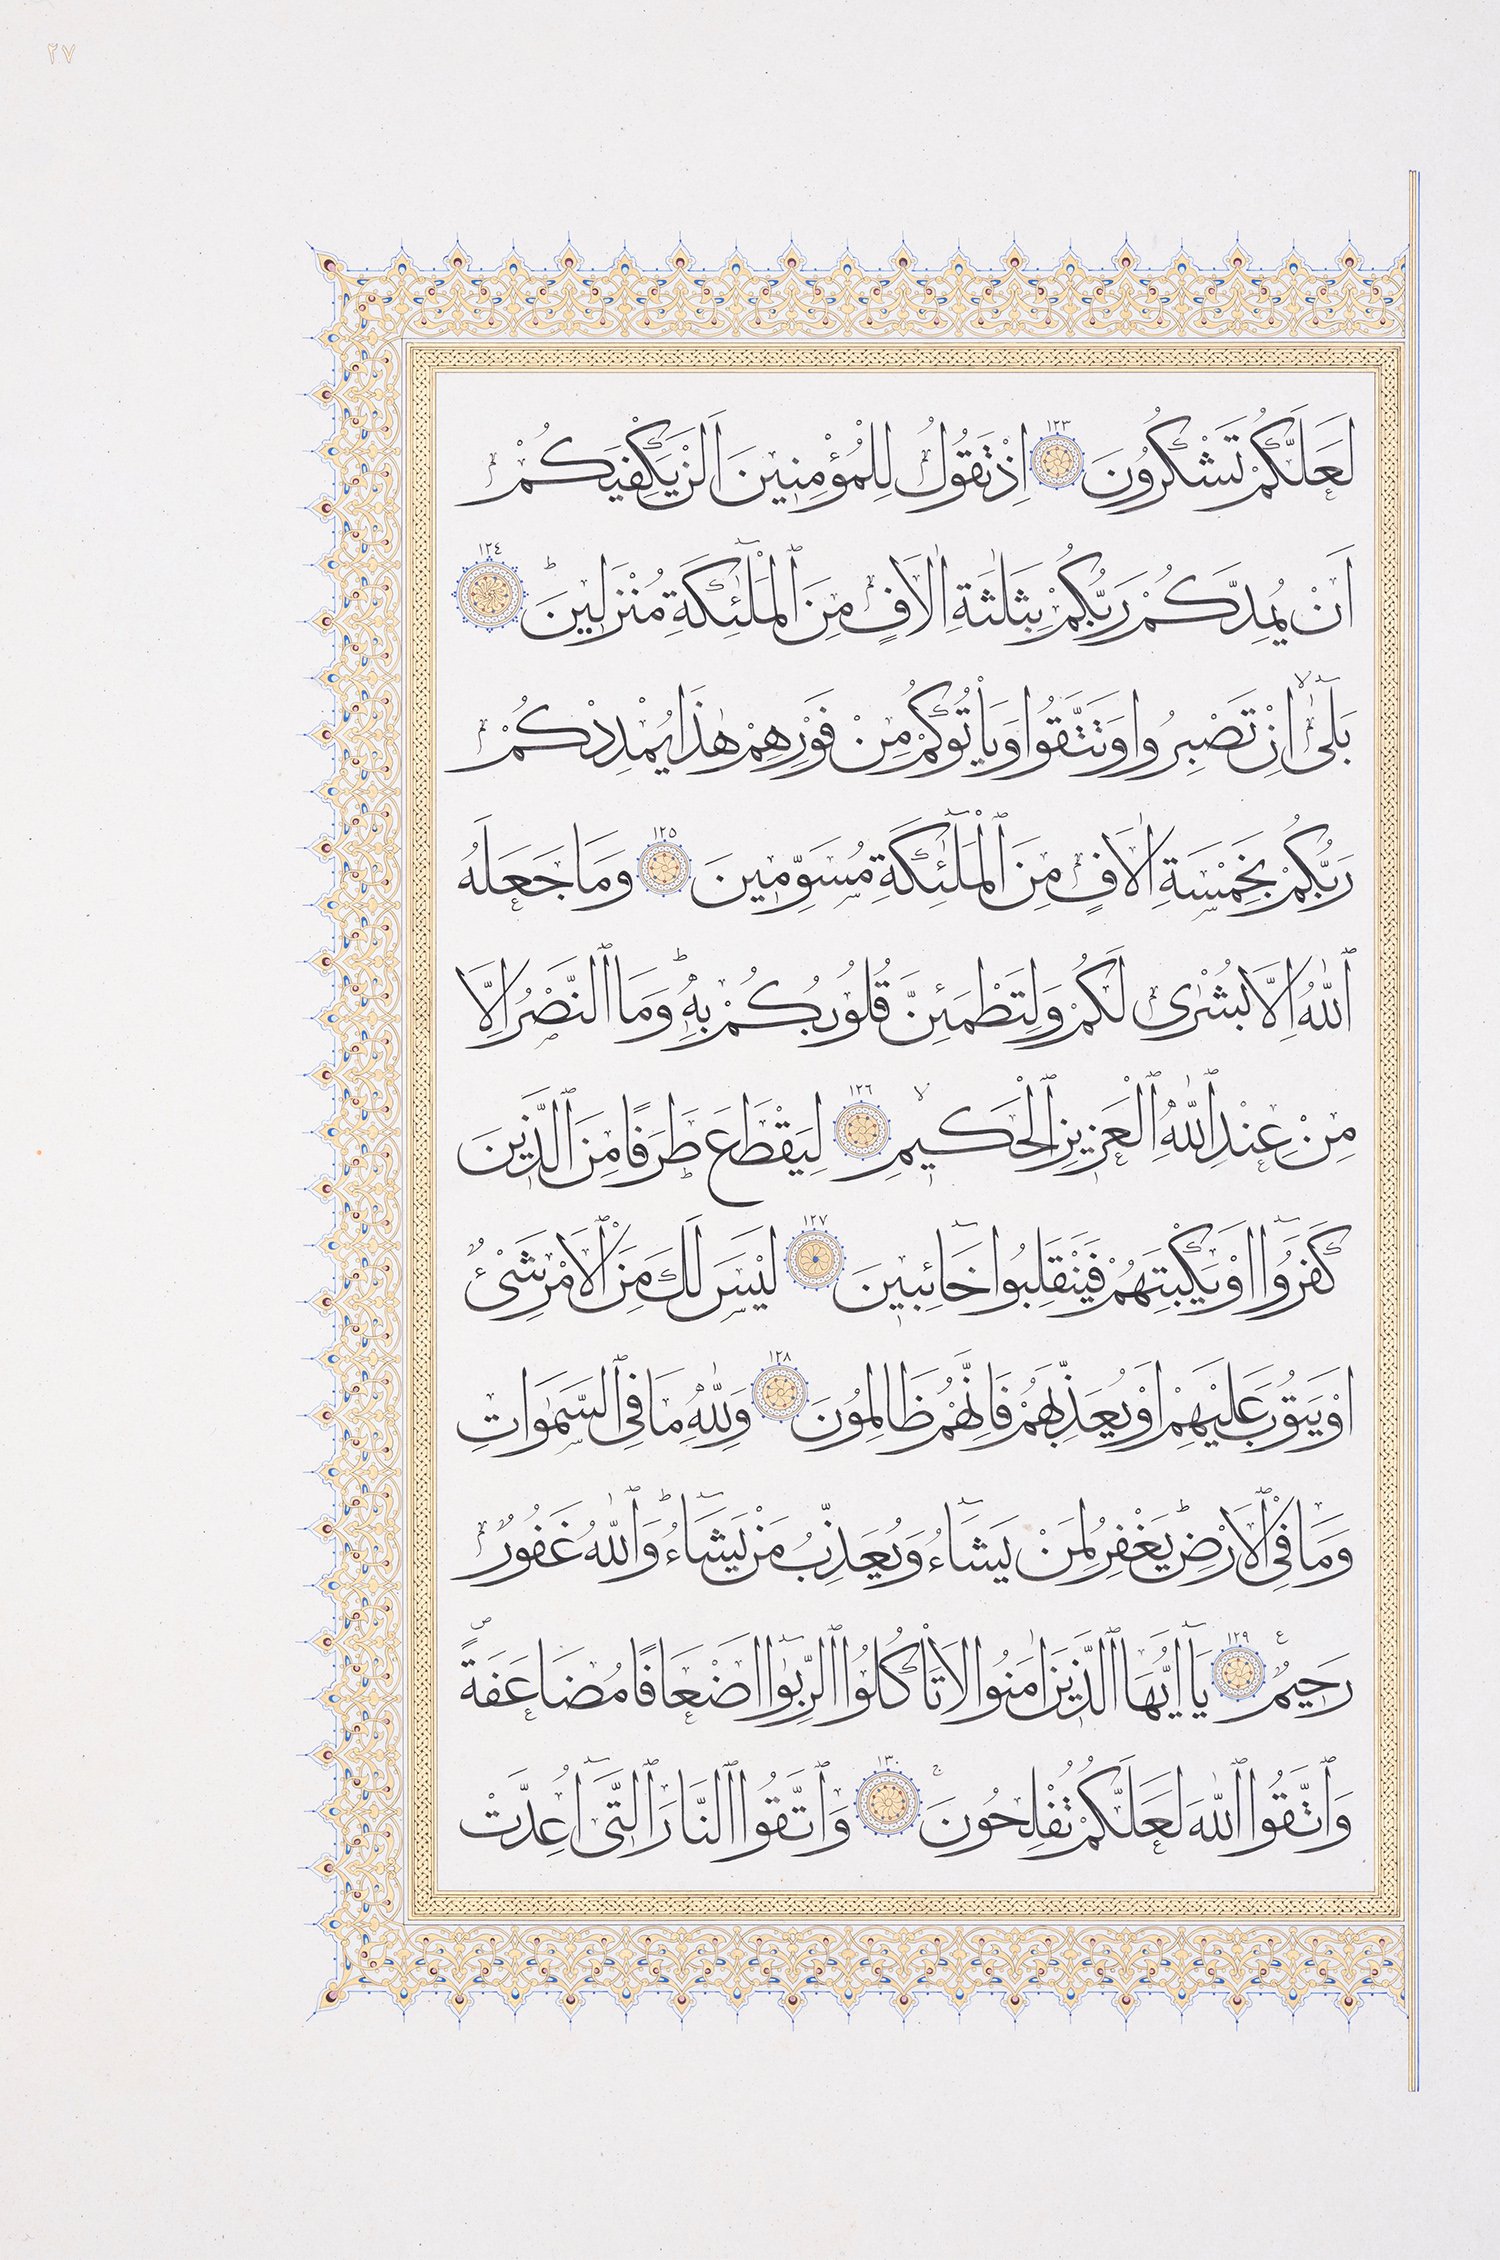 ٢٧
لَعَلَّكُمْ تَشْكُرُونَ ١٢٣ اِذْ تَقُولُ لِلْمُؤْمِنِينَ اَلَنْ يَكْفِيَكُمْ
اَنْ يُمِدَّكُمْ رَبُّكُمْ بِثَلٰثَةِ اٰلَافٍ مِنَ الْمَلٰٓئِكَةِ مُنْزَلِينَۜ ١٢٤
بَلٰٓىۙ اِنْ تَصْبِرُوا وَتَتَّقُوا وَيَأْتُوكُمْ مِنْ فَوْرِهِمْ هٰذَا يُمْدِدْكُمْ
رَبُّكُمْ بِخَمْسَةِ اٰلَافٍ مِنَ الْمَلٰٓئِكَةِ مُسَوِّمِينَ ١٢٥ وَمَا جَعَلَهُ
اللّٰهُ اِلَّا بُشْرٰى لَكُمْ وَلِتَطْمَئِنَّ قُلُوبُكُمْ بِهٖۜ وَمَا النَّصْرُ اِلَّا
مِنْ عِنْدِ اللّٰهِ الْعَزِيزِ الْحَكِيمِۙ ١٢٦ لِيَقْطَعَ طَرَفًا مِنَ الَّذِينَ
كَفَرُٓوا اَوْ يَكْبِتَهُمْ فَيَنْقَلِبُوا خَٓائِبِينَ ١٢٧ لَيْسَ لَكَ مِنَ الْاَمْرِ شَىْءٌ
اَوْ يَتُوبَ عَلَيْهِمْ اَوْ يُعَذِّبَهُمْ فَاِنَّهُمْ ظَالِمُونَ ١٢٨ وَلِلّٰهِ مَا فِى السَّمٰوَاتِ
وَمَا فِى الْاَرْضِۜ يَغْفِرُ لِمَنْ يَشَٓاءُ وَيُعَذِّبُ مَنْ يَشَٓاءُۜ وَاللّٰهُ غَفُورٌ
رَحِيمٌ ١٢٩ ع يَٓا اَيُّهَا الَّذِينَ اٰمَنُوا لَا تَأْكُلُوا الرِّبٰٓوا اَضْعَافًا مُضَاعَفَةًۖ
وَاتَّقُوا اللّٰهَ لَعَلَّكُمْ تُفْلِحُونَۚ ١٣٠ وَاتَّقُوا النَّارَ الَّتِٓى اُعِدَّتْ